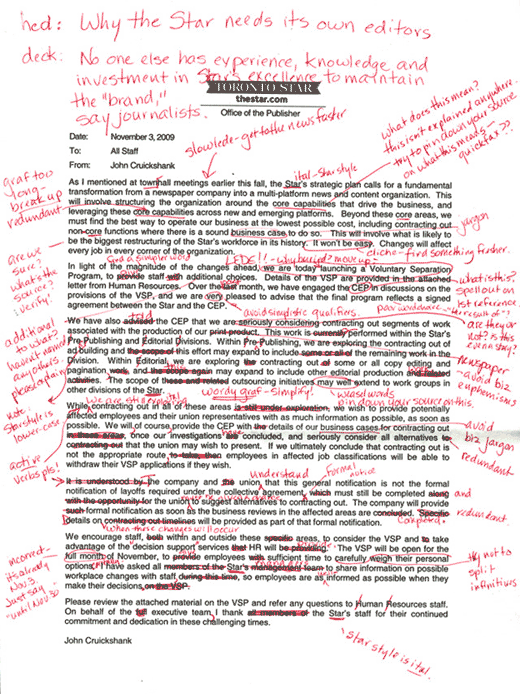 hed: Why the Star needs its own editors
deck: No one else has experience, knowledge and
investment in Star's excellence to maintain
the "brand,"
say journalists.
TORONTO STAR
thestar.com
Office of the Publisher
what does this mean?
this isn't explained anywhere -
try to pin down your source
on what this means -
quick fax??
Date: November 3, 2009
To: All Staff
From: John Cruickshank
slow lede - get to the news faster
ital - Star style
graf too
long -
break up
redundant
As I mentioned at townhall meetings earlier this fall, the Star's strategic plan calls for a fundamental
transformation from a newspaper company into a multi-platform news and content organization. This
will involve structuring the organization around the core capabilities that drive the business, and
leveraging these core capabilities across new and emerging platforms. Beyond these core areas, we
must find the best way to operate our business at the lowest possible cost, including contracting out
non-core functions where there is a sound business case, to do so. This will involve what is likely to
be the biggest restructuring of the Star's workforce in its history. It won't be easy. Changes will affect
every job in every corner of the organization.
jargon
cliche - find something fresher
are we
sure?
what's the
source?
verify
Find a simpler word
LEDE!! - why buried? move up
In light of the magnitude of the changes ahead, we are today launching a Voluntary Separation
Program, to provide staff with additional choices. Details of the VSP are provided in the attached
letter from Human Resources. Over the last month, we have engaged the CEP in discussions on the
provisions of the VSP, and we are very pleased to advise that the final program reflects a signed
agreement between the Star and the CEP.
what is this?
spell out on
1st reference
avoid simplistic qualifiers.
are they
or not?
additional
to what?
told
We have also advised the CEP that we are seriously considering contract out segments of work
associated with the production of our print product. This work is currently performed within the Star's
Pre-Publishing and Editorial Divisions. Within Pre-Publishing, we are exploring the contracting out of
ad building and the scope of this effort may expand to include some or all of the remaining work in the
Division. Within Editorial, we are exploring the contracting out of some or all copy editing and
pagination work, and the scope again may expand to include other editorial production and related
activities. The scope of these and related outsourcing initiatives may well extend to work groups in
other divisions of the Star.
newspaper
- avoid biz
euphemisms
Star style is
lower-case
wordy graf - simplify
weasel words
pin down your source on this.
We are still exploring
While contracting out in all of these areas is still under exploration, we wish to provide potentially
affected employees and their union representatives with as much information as possible, as soon as
possible. We will of course provide the CEP with the details of our business cases for contracting out
in these areas, once our investigations are concluded, and seriously consider all alternatives to
contracting out that the union may wish to present. If we ultimately conclude that contracting out is
not the appropriate route to take, then employees in affected job classifications will be able to
withdraw their VSP applications if they wish.
avoid
biz jargon
redundant
active
verbs pls!
understand
formal
notice
It is understood by the company and the union, that this general notification is not the formal
notification of layoffs required under the collective agreement, which must still be completed along
with the opportunity for the union to suggest alternatives to contracting out. The company will provide
such formal notification as soon as the business reviews in the affected areas are concluded. Specific
details on contracting out timelines will be provided as part of that formal notification.
and
redundant
completed.
when these changes will occur
We encourage staff, both within and outside these specific areas, to consider the VSP and to take
advantage of the decision support services that HR will be providing. The VSP will be open for the
full month of November, to provide employees with sufficient time to carefully weigh their personal
options. I have asked all members of the Star's management team to share information on possible
workplace changes with staff during this time, so employees are as informed as possible when they
make their decisions on the VSP.
incorrect
it's already
Nov 3
Just say
"until Nov 30"
try not to
split
infinitives
Please review the attached material on the VSP and refer any questions to Human Resources staff.
On behalf of the full executive team, I thank all members of the Star's staff for their continued
commitment and dedication in these challenging times.
John Cruickshank
Star style is ital.